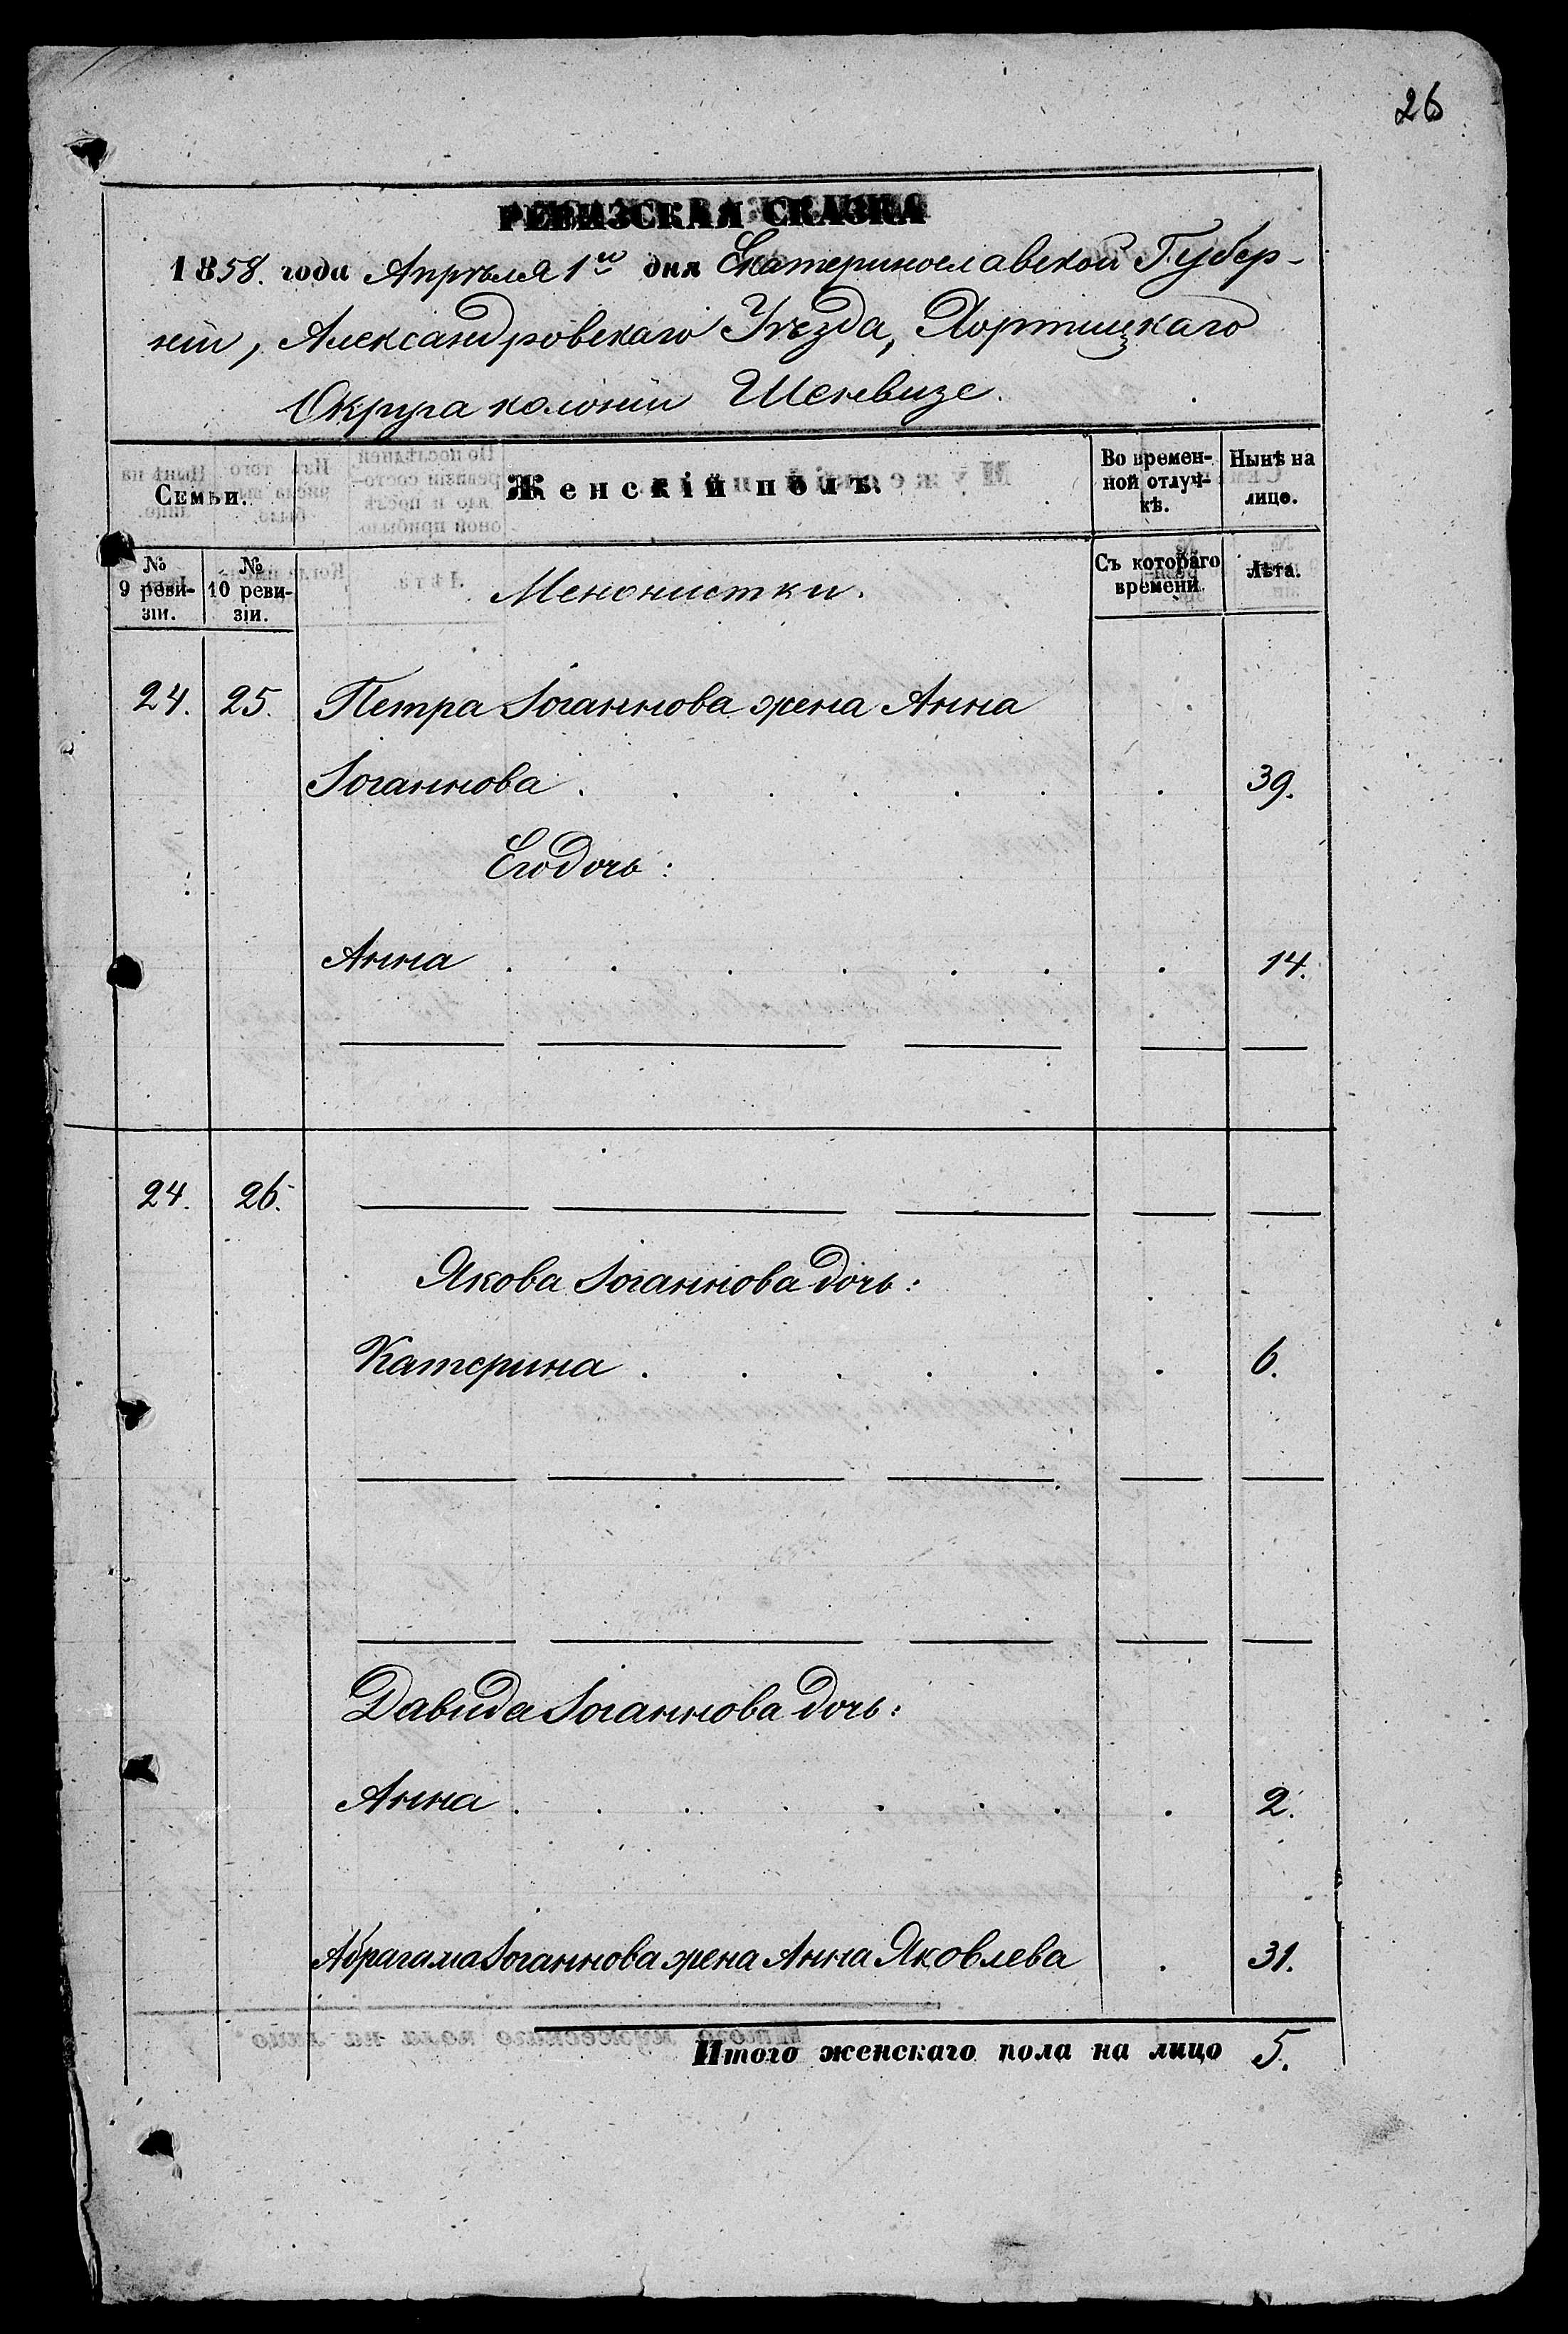 26
РЕВИЗСКАЯ СКАЗКА
1858. года Апрѣля 1го дня Екатеринославской Губер-
ніи, Александровскаго Уѣзда, Хортицкаго
Округа колоніи Шенвизе.
Семьи. Женскій полъ. Во времен-ной отлуч-кѣ. Нынѣ на лицо.
№ 9 реви-зіи. № 10 реви-зіи. Менонистки. Съ котораго времени. Лѣта.
24. 25. Петра Іоганнова жена Анна
Іоганнова . . . . . . . 39.
Его дочь:
Анна . . . . . . . 14.
24. 26.
Якова Іоганнова дочь:
Катерина . . . . . . 6.
Давида Іоганнова дочь:
Анна . . . . . . . . 2.
Абрагама Іоганнова жена Анна Яковлева . 31.
Итого женскаго пола на лицо 5.